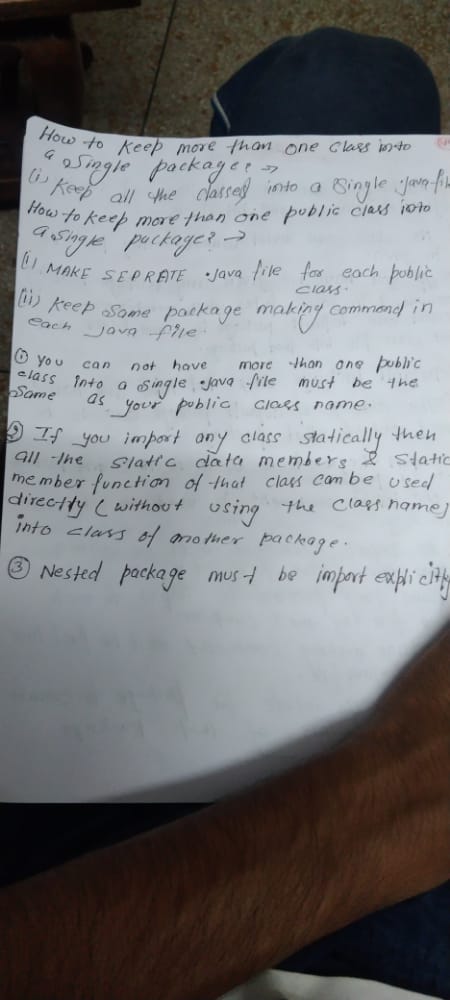 How to keep more than one class into
a single package? →
(i) Keep all the classes into a single .java fil
How to keep more than one public class into
a single package? →
(i) MAKE SEPRATE .java file for each public
class.
(ii) Keep same package making command in
each java file.
① You can not have more than one public
class into a single .java file must be the
same as your public class name.
② If you import any class statically then
all the static data members & static
member function of that class can be used
directly (without using the class name)
into class of another package.
③ Nested package must be import explicitly